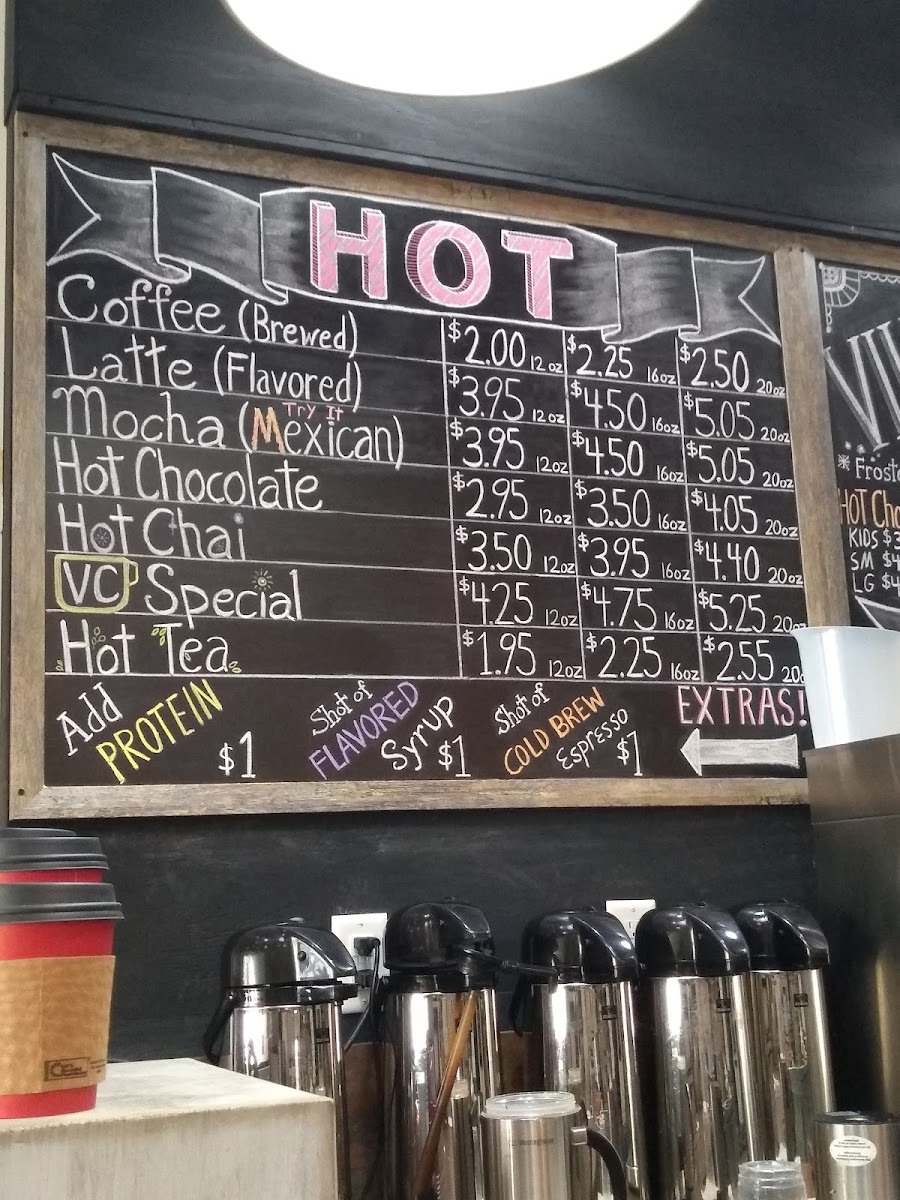 HOT
Coffee (Brewed) $2.00 12 oz $2.25 16oz $2.50 20oz
Latte (Flavored) $3.95 12 oz $4.50 16oz $5.05 20oz
Try It
Mocha (Mexican) $3.95 12oz $4.50 16oz $5.05 20oz
Hot Chocolate $2.95 12oz $3.50 16oz $4.05 20oz
Hot Chai $3.50 12oz $3.95 16oz $4.40 20oz
VC Special $4.25 12oz $4.75 16oz $5.25 20oz
Hot Tea $1.95 12oz $2.25 16oz $2.55 20
Add PROTEIN $1
Shot of FLAVORED Syrup $1
Shot of COLD BREW Espresso $1
EXTRAS!
HOT
KIDS $3
SM $4
LG $4
Westinghouse